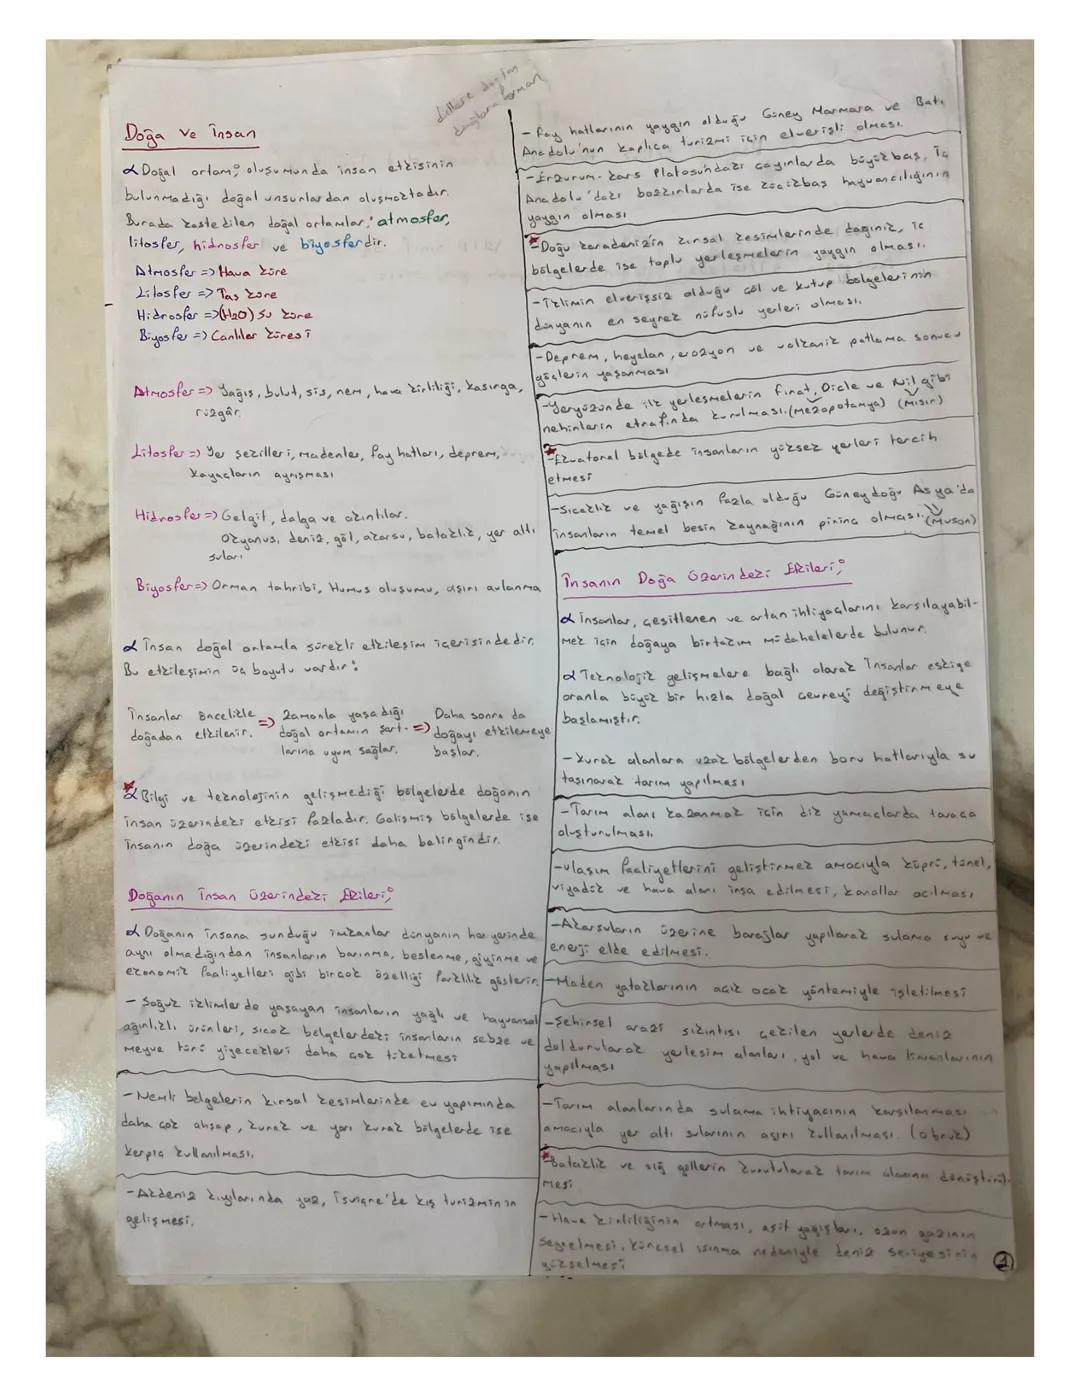 Doğa Ve İnsan
α Doğal ortam; oluşumunda insan etkisinin
bulunmadığı doğal unsurlardan oluşmaktadır.
Burada kastedilen doğal ortamlar; atmosfer,
litosfer, hidrosfer ve biyosferdir.
Atmosfer => Hava küre
Litosfer => Taş küre
Hidrosfer => (H2O) Su küre
Biyosfer => Canlılar küresi
Atmosfer => Yağış, bulut, sis, nem, hava kirliliği, kasırga,
rüzgâr.
Litosfer => Yer şekilleri, madenler, fay hatları, deprem,
kayaçların ayrışması
Hidrosfer => Gelgit, dalga ve akıntılar.
Okyanus, deniz, göl, akarsu, bataklık, yer altı
suları
Biyosfer => Orman tahribi, Humus oluşumu, aşırı avlanma
α İnsan doğal ortamla sürekli etkileşim içerisindedir.
Bu etkileşimin üç boyutu vardır:
İnsanlar öncelikle => Zamanla yaşadığı Daha sonra da
doğadan etkilenir. doğal ortamın şart- => doğayı etkilemeye
larına uyum sağlar. başlar.
α Bilgi ve teknolojinin gelişmediği bölgelerde doğanın
insan üzerindeki etkisi fazladır. Gelişmiş bölgelerde ise
insanın doğa üzerindeki etkisi daha belirgindir.
Doğanın İnsan Üzerindeki Etkileri;
α Doğanın insana sunduğu imkanlar dünyanın her yerinde
aynı olmadığından insanların barınma, beslenme, giyinme ve
ekonomik faaliyetleri gibi birçok özelliği farklılık gösterir.
- Soğuk iklimlerde yaşayan insanların yağlı ve hayvansal
ağırlıklı ürünleri, sıcak bölgelerdeki insanların sebze ve
meyve türü yiyecekleri daha çok tüketmesi
- Nemli bölgelerin kırsal kesimlerinde ev yapımında
daha çok ahşap, kurak ve yarı kurak bölgelerde ise
kerpiç kullanılması.
- Akdeniz kıyılarında yaz, İsviçre'de kış turizminin
gelişmesi.
- Fay hatlarının yaygın olduğu Güney Marmara ve Batı
Anadolu'nun kaplıca turizmi için elverişli olması.
- Erzurum-Kars Platosundaki çayırlarda büyükbaş, İç
Anadolu'daki bozkırlarda ise küçükbaş hayvancılığının
yaygın olması
- Doğu Karadeniz'in kırsal kesimlerinde dağınık, iç
bölgelerde ise toplu yerleşmelerin yaygın olması.
- İklimin elverişsiz olduğu çöl ve kutup bölgelerinin
dünyanın en seyrek nüfuslu yerleri olması.
- Deprem, heyelan, erozyon ve volkanik patlama sonucu
göçlerin yaşanması
- Yeryüzünde ilk yerleşmelerin Fırat, Dicle ve Nil gibi
nehirlerin etrafında kurulması. (Mezopotamya) (Mısır)
- Ekvatoral bölgede insanların yüksek yerleri tercih
etmesi
- Sıcaklık ve yağışın fazla olduğu Güneydoğu Asya'da
insanların temel besin kaynağının pirinç olması. (Muson)
İnsanın Doğa Üzerindeki Etkileri;
α İnsanlar, çeşitlenen ve artan ihtiyaçlarını karşılayabil-
mek için doğaya birtakım müdahelelerde bulunur.
α Teknolojik gelişmelere bağlı olarak İnsanlar eskiye
oranla büyük bir hızla doğal çevreyi değiştirmeye
başlamıştır.
- Kurak alanlara uzak bölgelerden boru hatlarıyla su
taşınarak tarım yapılması
- Tarım alanı kazanmak için dik yamaçlarda taraça
oluşturulması.
- Ulaşım faaliyetlerini geliştirmek amacıyla köprü, tünel,
viyadük ve hava alanı inşa edilmesi, kanallar açılması,
- Akarsuların üzerine barajlar yapılarak sulama suyu ve
enerji elde edilmesi.
- Maden yataklarının açık ocak yöntemiyle işletilmesi
- Şehirsel arazi sıkıntısı çekilen yerlerde deniz
doldurularak yerleşim alanları, yol ve hava limanlarının
yapılması
- Tarım alanlarında sulama ihtiyacının karşılanması
amacıyla yer altı sularının aşırı kullanılması. (obruk)
- Bataklık ve sığ göllerin kurutularak tarım alanına dönüştürül-
mesi
- Hava kirliliğinin artması, asit yağışları, ozon gazının
seyrelmesi, küresel ısınma nedeniyle deniz seviyesinin
yükselmesi
1